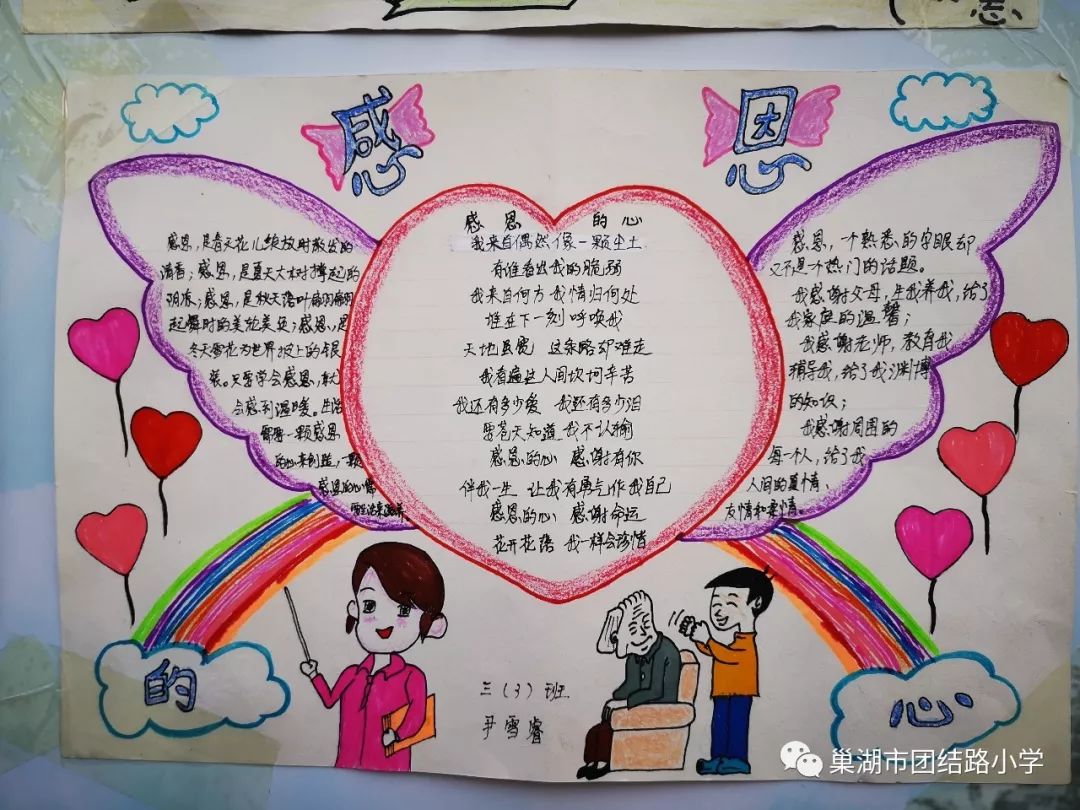 志
感
恩
感恩，是春天花儿绽放时散发的
清香；感恩，是夏天大树撑起的
阴凉；感恩，是秋天落叶翩翩
起舞时的美
感恩，是
冬天雪花为世界披上的银
装。只要学会感恩，就
会感到温暖。生活
需要一颗感恩
的心来创造，一颗
感恩的心需
要生活来滋养
感恩的心
我来自偶然像一颗尘土
有谁看出我的脆弱
我来自何方我情归何处
谁在下一刻呼唤我
天地虽宽 这条路却难走
我看遍这人间坎坷辛苦
我还有多少爱 我还有多少泪
要苍天知道 我不认输
感恩的心 感谢有你
伴我一生 让我有勇气作我自己
感恩的心 感谢命运
花开花落 我一样会珍惜
感恩，一个熟悉的字眼却
又不是个热门的话题。
我感谢父母，生我养我，给了
我家庭的温馨；
我感谢老师，教育我
辅导我，给了我渊博
的知识；
我感谢周围的
每一个人，给了我
人间的真情、
友情和亲情。
的
心
三（3）班
尹雪睿
巢湖市团结路小学